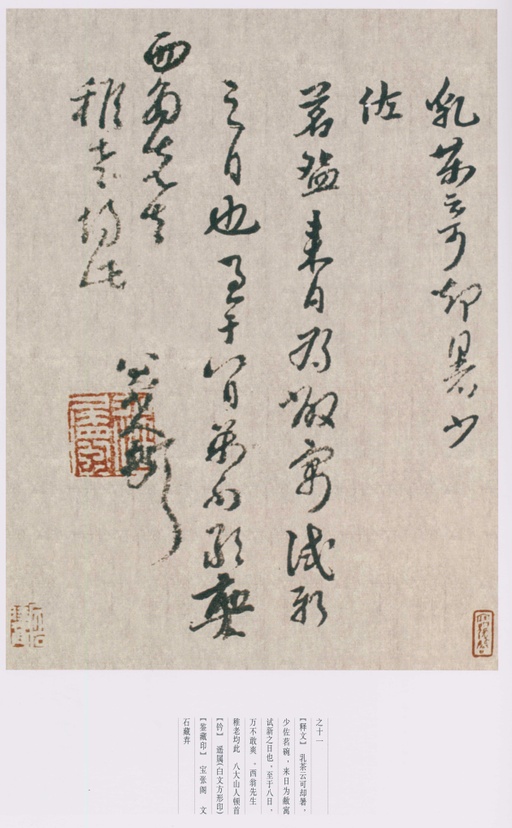 乳茶云可却暑少
佐
茗碗来日為敝寓試新
之日也至于八日萬不敢爽
西翁先生
稚老均此
八大山人
之十一
【释文】 乳茶云可却暑，
少佐茗碗，来日为敝寓
试新之日也。至于八日，
万不敢爽 。西翁先生
稚老均此 八大山人顿首
【钤】 遥属(白文方形印)
【鉴藏印】 宝张阁 文
石藏弆